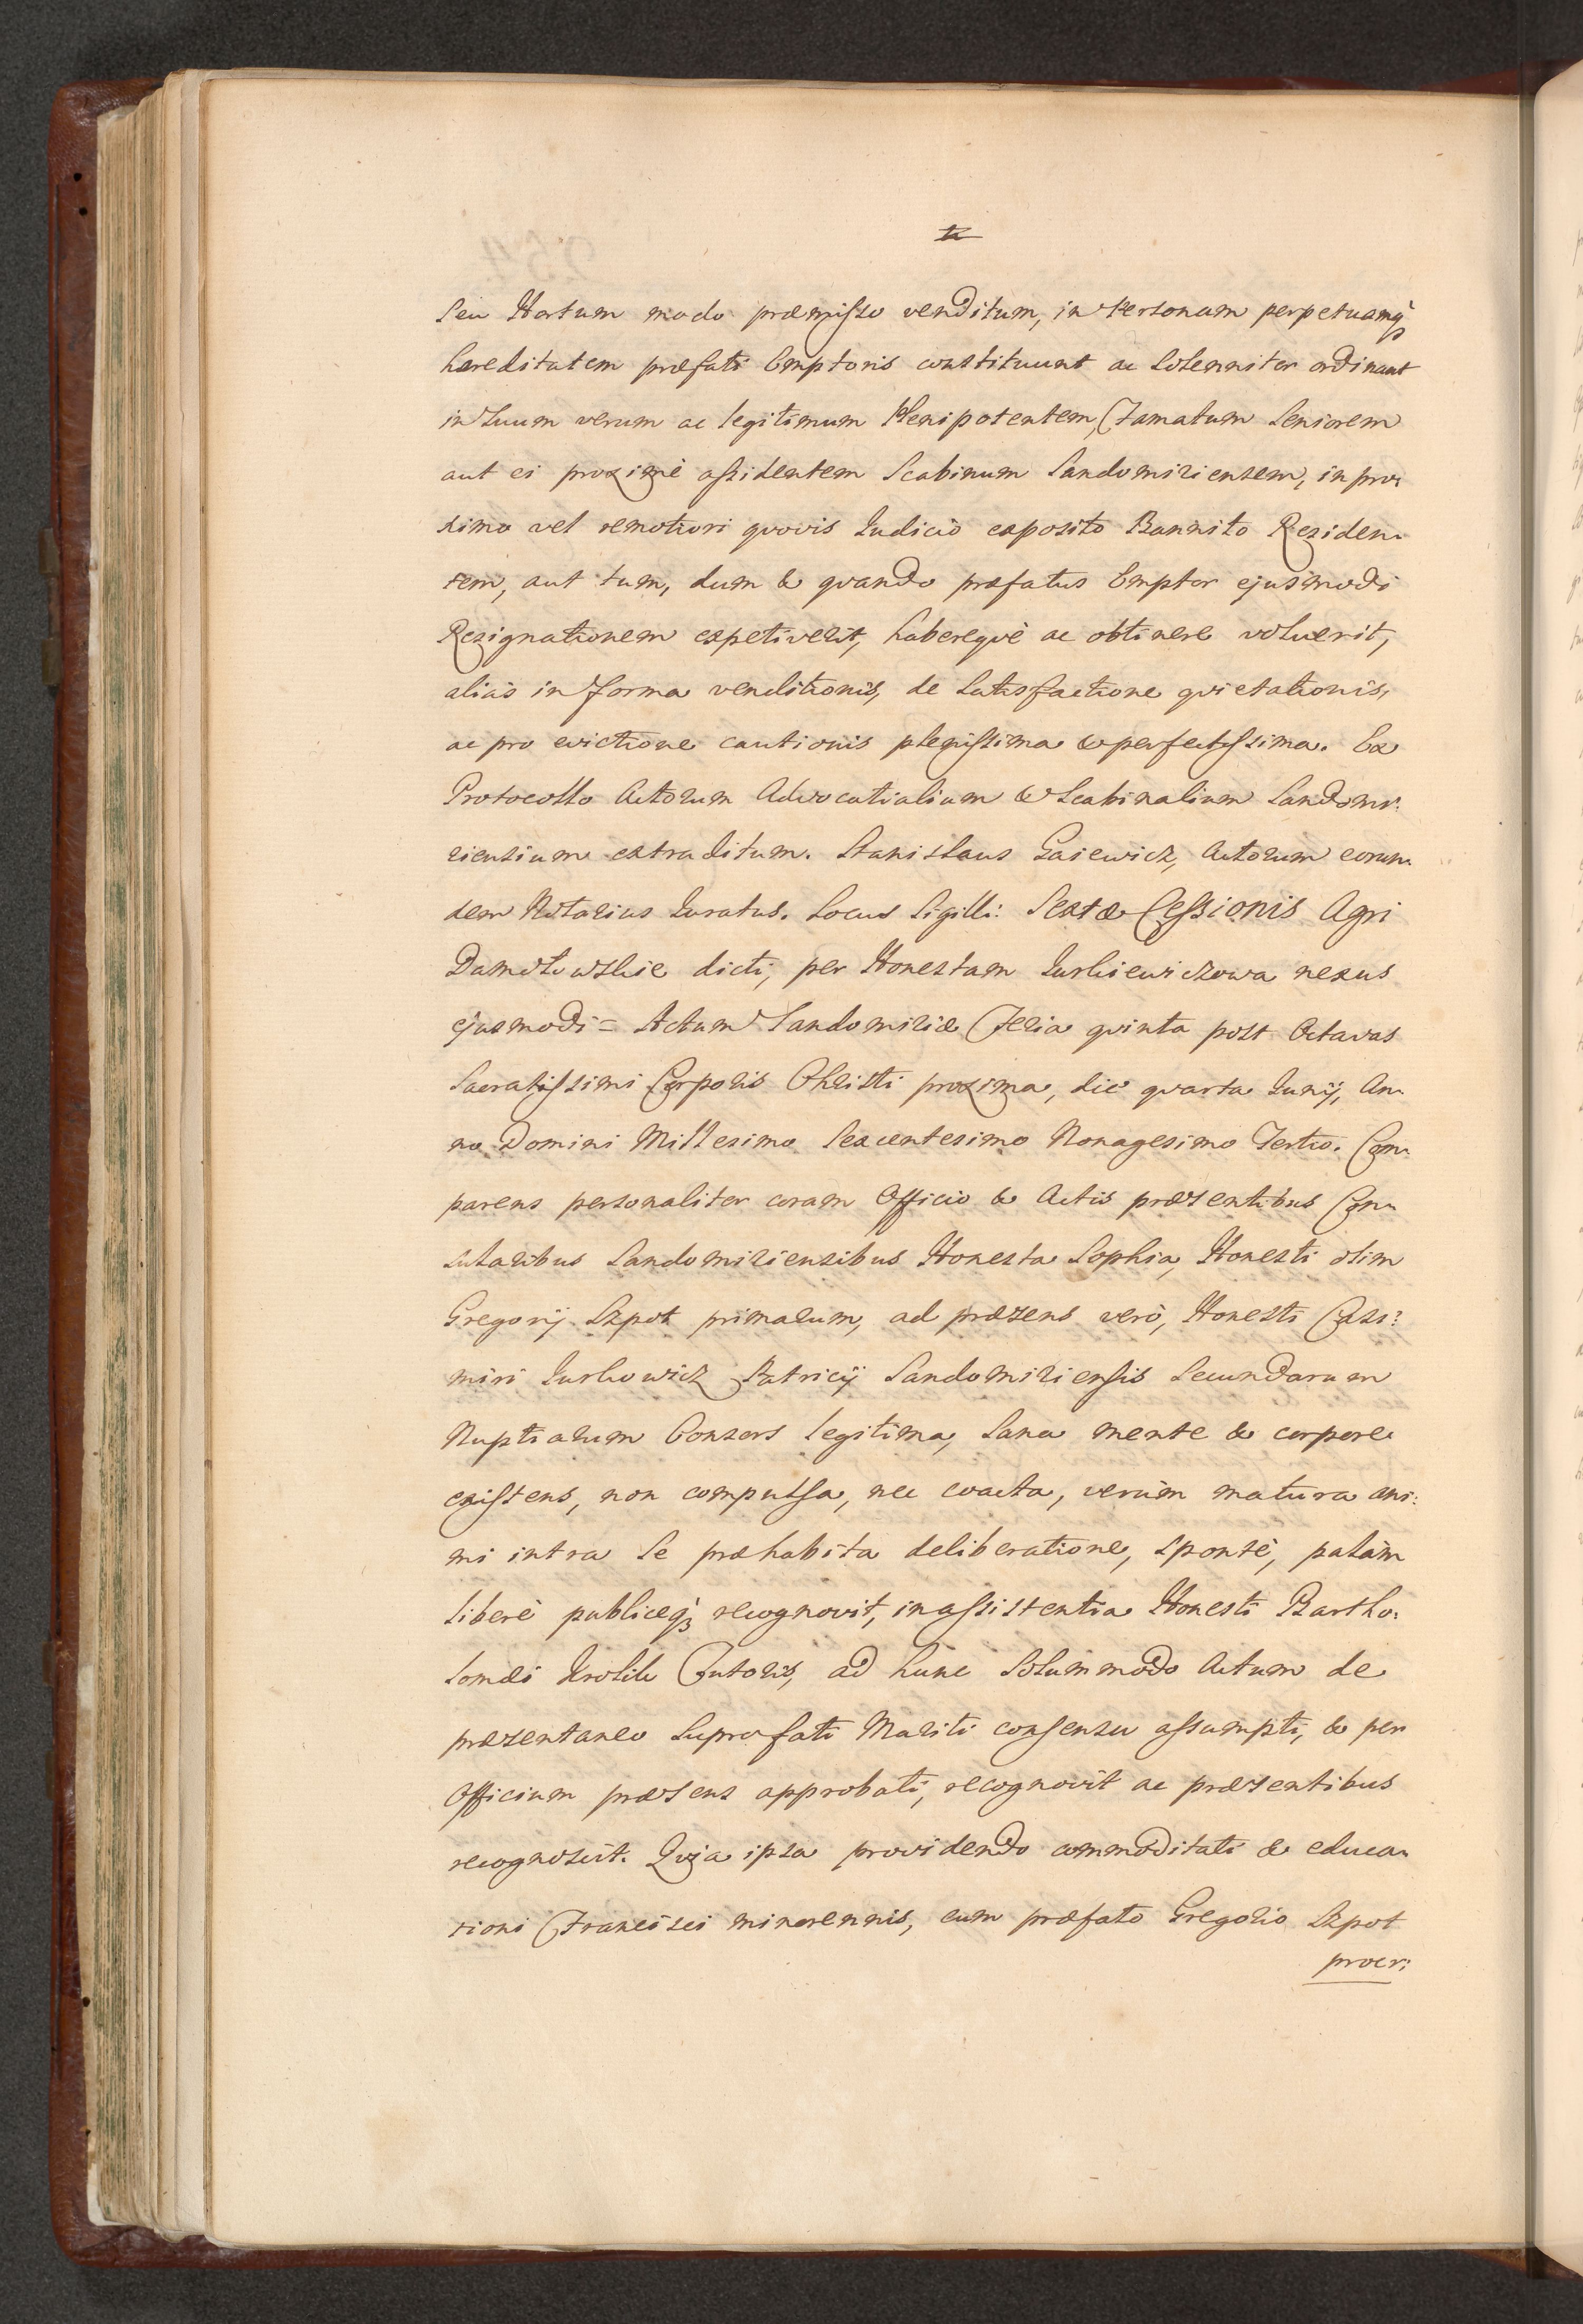 seu Hortum modo præmisso venditum, in Personam perpetuamq̀₃
hæreditatem præfati Emptoris constituunt ac solenniter ordinant
in suum verum ac legitimum Plenipotentem, Famatum Seniorem
aut ei proximè assidentem Scabinum Sandomiriensem, in pro-
ximo vel remotiori qvovis Iudicio exposito Bannito Residen-
tem, aut tum, dum & qvando præfatus Emptor ejusmodi
Resignationem expetiverit, habereqvè ac obtinere voluerit,
aliàs in forma venditionis, de satisfactione qvietationis,
ac pro evictione cautionis plenissima & perfectissima. Ex
Protocollo Actorum Advocatialium & Scabinalium Sandomi:
riensium extraditum. Stanislaus Gaiewicz, Actorum eorun-
dem Notarius Iuratus. Locus Sigilli: Sextæ Cessionis Agri
Damołowskie dicti, per Honestam Iurkiewiczowa nexus
ejusmodi = Actum Sandomiriæ Feria qvinta post Octavas
Sacratissimi Corporis Christi proxima, die qvarta Iunij, An-
no Domini Millesimo Sexcentesimo Nonagesimo Tertio. Com-
parens personaliter coram Officio & Actis præsentibus Con-
sularibus Sandomiriensibus Honesta Sophia, Honesti olim
Gregorij Szpot primarum, ad præsens verò, Honesti Casi:
miri Iurkowicz Patricij Sandomiriensis Secundarum
Nuptiarum Consors legitima, sana mente & corpore
existens, non compulsa, nec coacta, verùm matura ani:
mi intra se præhabita deliberatione, spontè, palàm
liberè publiceq̀₃ recognovit, in assistentia Honesti Bartho:
lomæi Krolik Tutoris, ad hunc solummodo Actum de
præsentaneo suprafati Mariti consensu assumpti, & per
Officium præsens approbati, recognovit ac præsentibus
recognoscit. Qvia ipsa providendo commoditati & educa-
tioni Francisci minorennis, cum præfato Gregorio Szpot
procr: